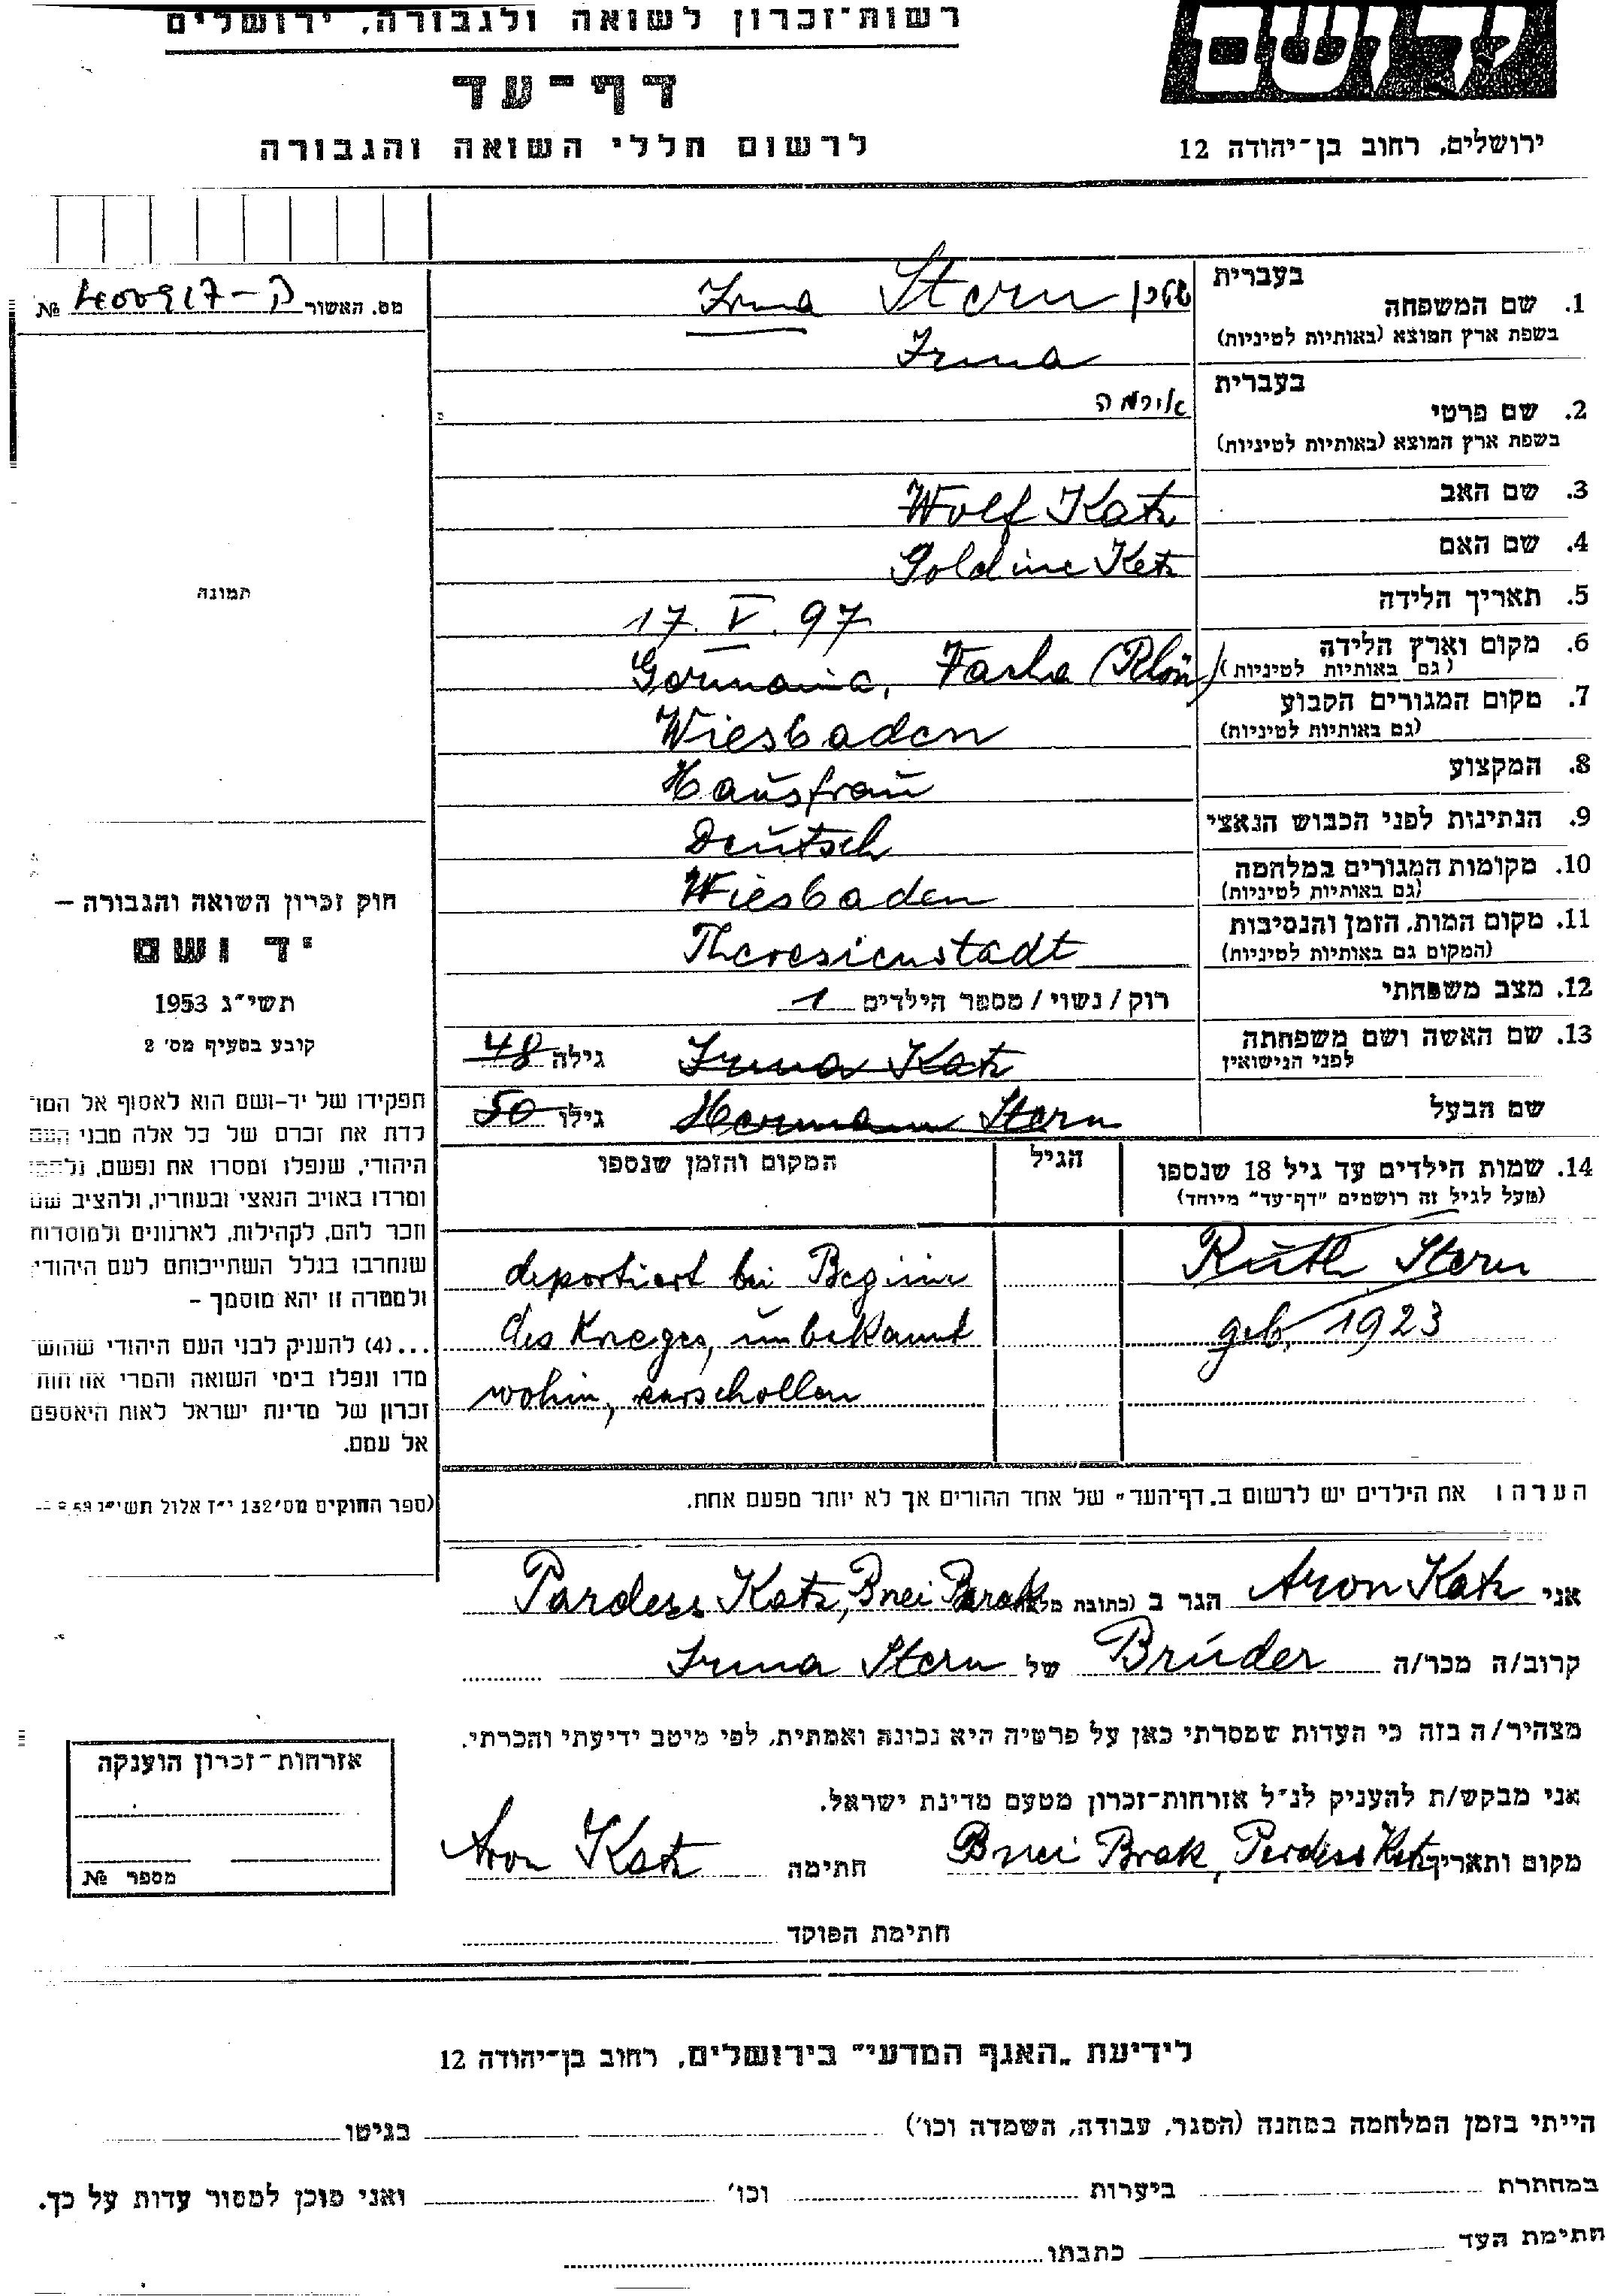 רשות־זכרון לשואה ולגבורה, ירושלים
דף־עד
לרשום חללי השואה והגבורה
ד ושם
ירושלים, רחוב בן־יהודה 12
מס. האשור №
1. שם המשפחה
בעברית
שטרן Stern Irma
בשפת ארץ המוצא (באותיות לטיניות)
Irma
2. שם פרטי
בעברית
אירמה
בשפת ארץ המוצא (באותיות לטיניות)
3. שם האב Wolf Katz
4. שם האם Goldine Katz
5. תאריך הלידה 17. V. 97
6. מקום וארץ הלידה
(גם באותיות לטיניות) Germania, (Rhön)
7. מקום המגורים הקבוע
(גם באותיות לטיניות) Wiesbaden
8. המקצוע Hausfrau
9. הנתינות לפני הכבוש הנאצי Deutsch
10. מקומות המגורים במלחמה
(גם באותיות לטיניות) Wiesbaden
11. מקום המות, הזמן והנסיבות
(המקום גם באותיות לטיניות) Theresienstadt
12. מצב משפחתי רוק / נשוי / מספר הילדים 1
13. שם האשה ושם משפחתה
לפני הנישואין Irma Katz גילה 48
שם הבעל Hermann Stern גילו 50
14. שמות הילדים עד גיל 18 שנספו
(מעל לגיל זה רושמים "דף־עד" מיוחד)
הגיל
המקום והזמן שנספו
Ruth Stern deportiert bei Beginn
geb. 1923 des Krieges, unbekannt
wohin, verschollen
הערה: את הילדים יש לרשום ב„דף־העד" של אחד ההורים אך לא יותר מפעם אחת.
תמונה
חוק זכרון השואה והגבורה —
יד ושם
תשי"ג 1953
קובע בסעיף מס' 2
תפקידו של יד-ושם הוא לאסוף אל המו
לדת את זכרם של כל אלה מבני העם
היהודי, שנפלו ומסרו את נפשם, נלחמו
ומרדו באויב הנאצי ובעוזריו, ולהציב שם
וזכר להם, לקהילות, לארגונים ולמוסדות
שנחרבו בגלל השתייכותם לעם היהודי
ולמטרה זו יהא מוסמך -
...(4) להעניק לבני העם היהודי שהוש
מדו ונפלו בימי השואה והמרי אזרחות
זכרון של מדינת ישראל לאות היאספם
אל עמם.
(ספר החוקים מס' 132 י"ז אלול תשי"ג
אני Aron Katz הגר ב (כתובת Pardess Katz, Bnei Barak
קרוב/ה מכר/ה Bruder של Irma Stern
מצהיר/ה בזה כי העדות שמסרתי כאן על פרטיה היא נכונה ואמתית, לפי מיטב ידיעתי והכרתי.
אני מבקש/ת להעניק לנ"ל אזרחות־זכרון מטעם מדינת ישראל.
מקום ותאריך Bnei Brak, Perdess Katz חתימה Aron Katz
חתימת הפוקד
אזרחות־זכרון הוענקה
מספר №
לידיעת „האגף המדעי" בירושלים, רחוב בן־יהודה 12
הייתי בזמן המלחמה במחנה (הסגר, עבודה, השמדה וכו') בגיטו
במחתרת ביערות וכו' ואני מוכן למסור עדות על כך.
חתימת העד כתבתו